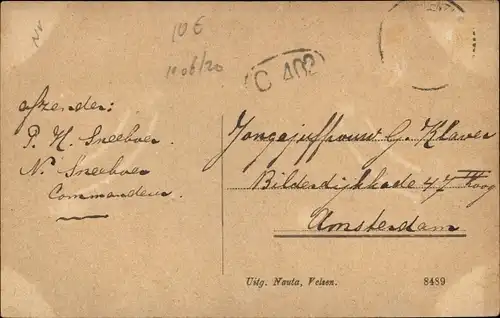 10 €
1006/20
C 402
afzender:
P. H. Sneeboer.
N. Sneeboer
Commandeur
Jongejufvrouw G. Klaver
Bilderdijkkade 47 III Hoog
Amsterdam
Uitg. Nauta, Velsen.
8489